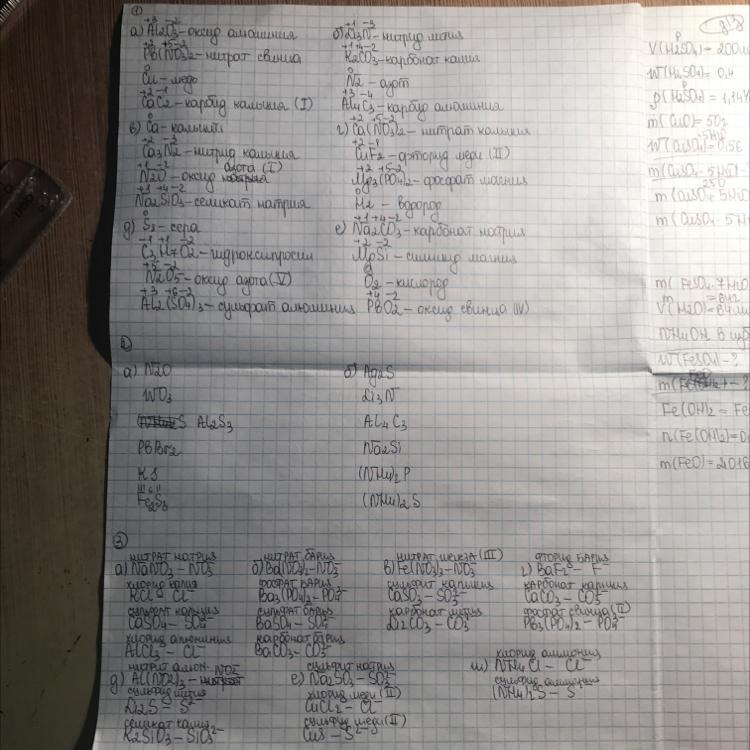 ①
а) Al2O3 - оксид алюминия
+3 -2
Pb(NO3)2 - нитрат свинца
+2 +5 -2
Cu - медь
0
CaC2 - карбид кальция (I)
+2 -1
б) Li3N - нитрид лития
+1 -3
K2CO3 - карбонат калия
+1 +4 -2
N2 - азот
0
Al4C3 - карбид алюминия
+3 -4
в) Ca - кальций
0
Ca3N2 - нитрид кальция
+2 -3
N2O - оксид азота (I)
+1 -2
Na2SiO3 - селикат натрия
+1 +4 -2
г) Ca(NO3)2 - нитрат кальция
+2 +5 -2
CuF2 - фторид меди (II)
+2 -1
Mg3(PO4)2 - фосфат магния
+2 +5 -2
H2 - водород
0
д) S8 - сера
0
C3H7O2 - гидроксипросин
-1 +1 -2
N2O5 - оксид азота (V)
+5 -2
Al2(SO4)3 - сульфат алюминия
+3 +6 -2
е) Na2CO3 - карбонат натрия
+1 +4 -2
MgSi - силицид магния
+2 -2
O2 - кислород
0
PbO2 - оксид свинца (IV)
+4 -2
②
а) N2O
WO3
Al2S3
PBBr2
KI
III II
Fe2S3
б) Ag2S
Li3N
Al4C3
Na2Si
(NH4)2P
(NH4)2S
③
нитрат натрия
а) NaNO3 - NO3-
хлорид калия
KCl - Cl-
сульфат кальция
CaSO4 - SO4-
хлорид алюминия
AlCl3 - Cl-
нитрат бария
б) Ba(NO3)2 - NO3-
фосфат бария
Ba3(PO4)2 - PO4 3-
сульфат бария
BaSO4 - SO4-
карбонат бария
BaCO3 - CO3-
нитрат железа (III)
в) Fe(NO3)3 - NO3-
сульфит кальция
CaSO3 - SO3-
карбонат лития
Li2CO3 - CO3-
фторид бария
г) BaF2 - F-
карбонат кальция
CaCO3 - CO3-
фосфат свинца (II)
Pb3(PO4)2 - PO4 3-
нитрит алюм.
д) Al(NO2)3 - NO2-
сульфид лития
Li2S - S2-
селикат калия
K2SiO3 - SiO3 2-
сульфит натрия
е) Na2SO3 - SO3-
хлорид меди (II)
CuCl2 - Cl-
сульфид меди (II)
CuS - S2-
хлорид аммония
ш) NH4Cl - Cl-
сульфид аммония
(NH4)2S - S
д/з
V(H2SO4) - 200
W(H2SO4) = 0,4
ρ(H2SO4) = 1,14
m(CuO) = 50
m(CuSO4 · 5H2O
250
m(CuSO4 · 5H2
m(CuSO4 · 5H
m(FeSO4 · 7H2O
V(H2O) = 84
NH4OH в
W(FeSO4) - ?
Fe(OH)2 = Fe
n(Fe(OH)2) = 0
m(FeO) = 2,016